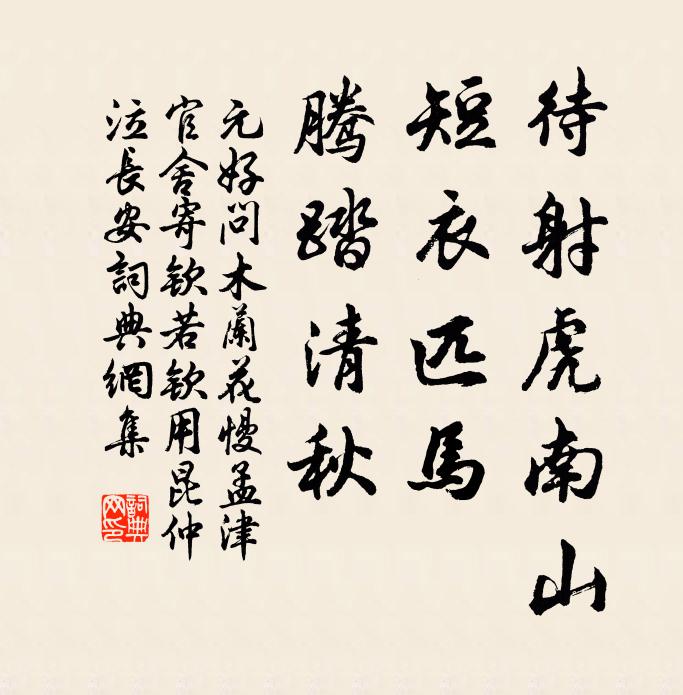 待射虎南山
短衣匹馬
騰踏清秋
元好問木蘭花慢孟津
官舍寄欽若欽用昆仲
泣長安詞典網集
詞典
网印